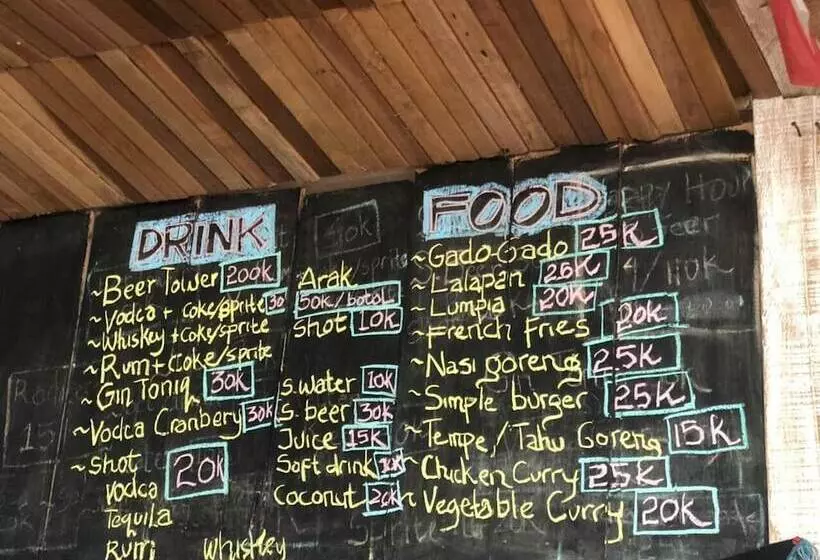 DRINK
~Beer Tower 200k
~Vodca + coke/sprite 30
~Whiskey + coke/sprite
~Rum + coke/sprite
~Gin Toniq 30k
~Vodca Cranbery 30k
~shot 20k
vodca
Tequila
Rum whiskey
Arak
50k/botol
shot 10k
s.water 10k
s.beer 30k
Juice 15k
Soft drink
Coconut 20k
FOOD
~Gado-Gado 25k
~Lalapan 25k
~Lumpia 20k
~French fries 20k
~Nasi goreng 25k
~Simple burger 25k
~Tempe/Tahu Goreng 15k
~Chicken Curry 25k
~Vegetable Curry 20k